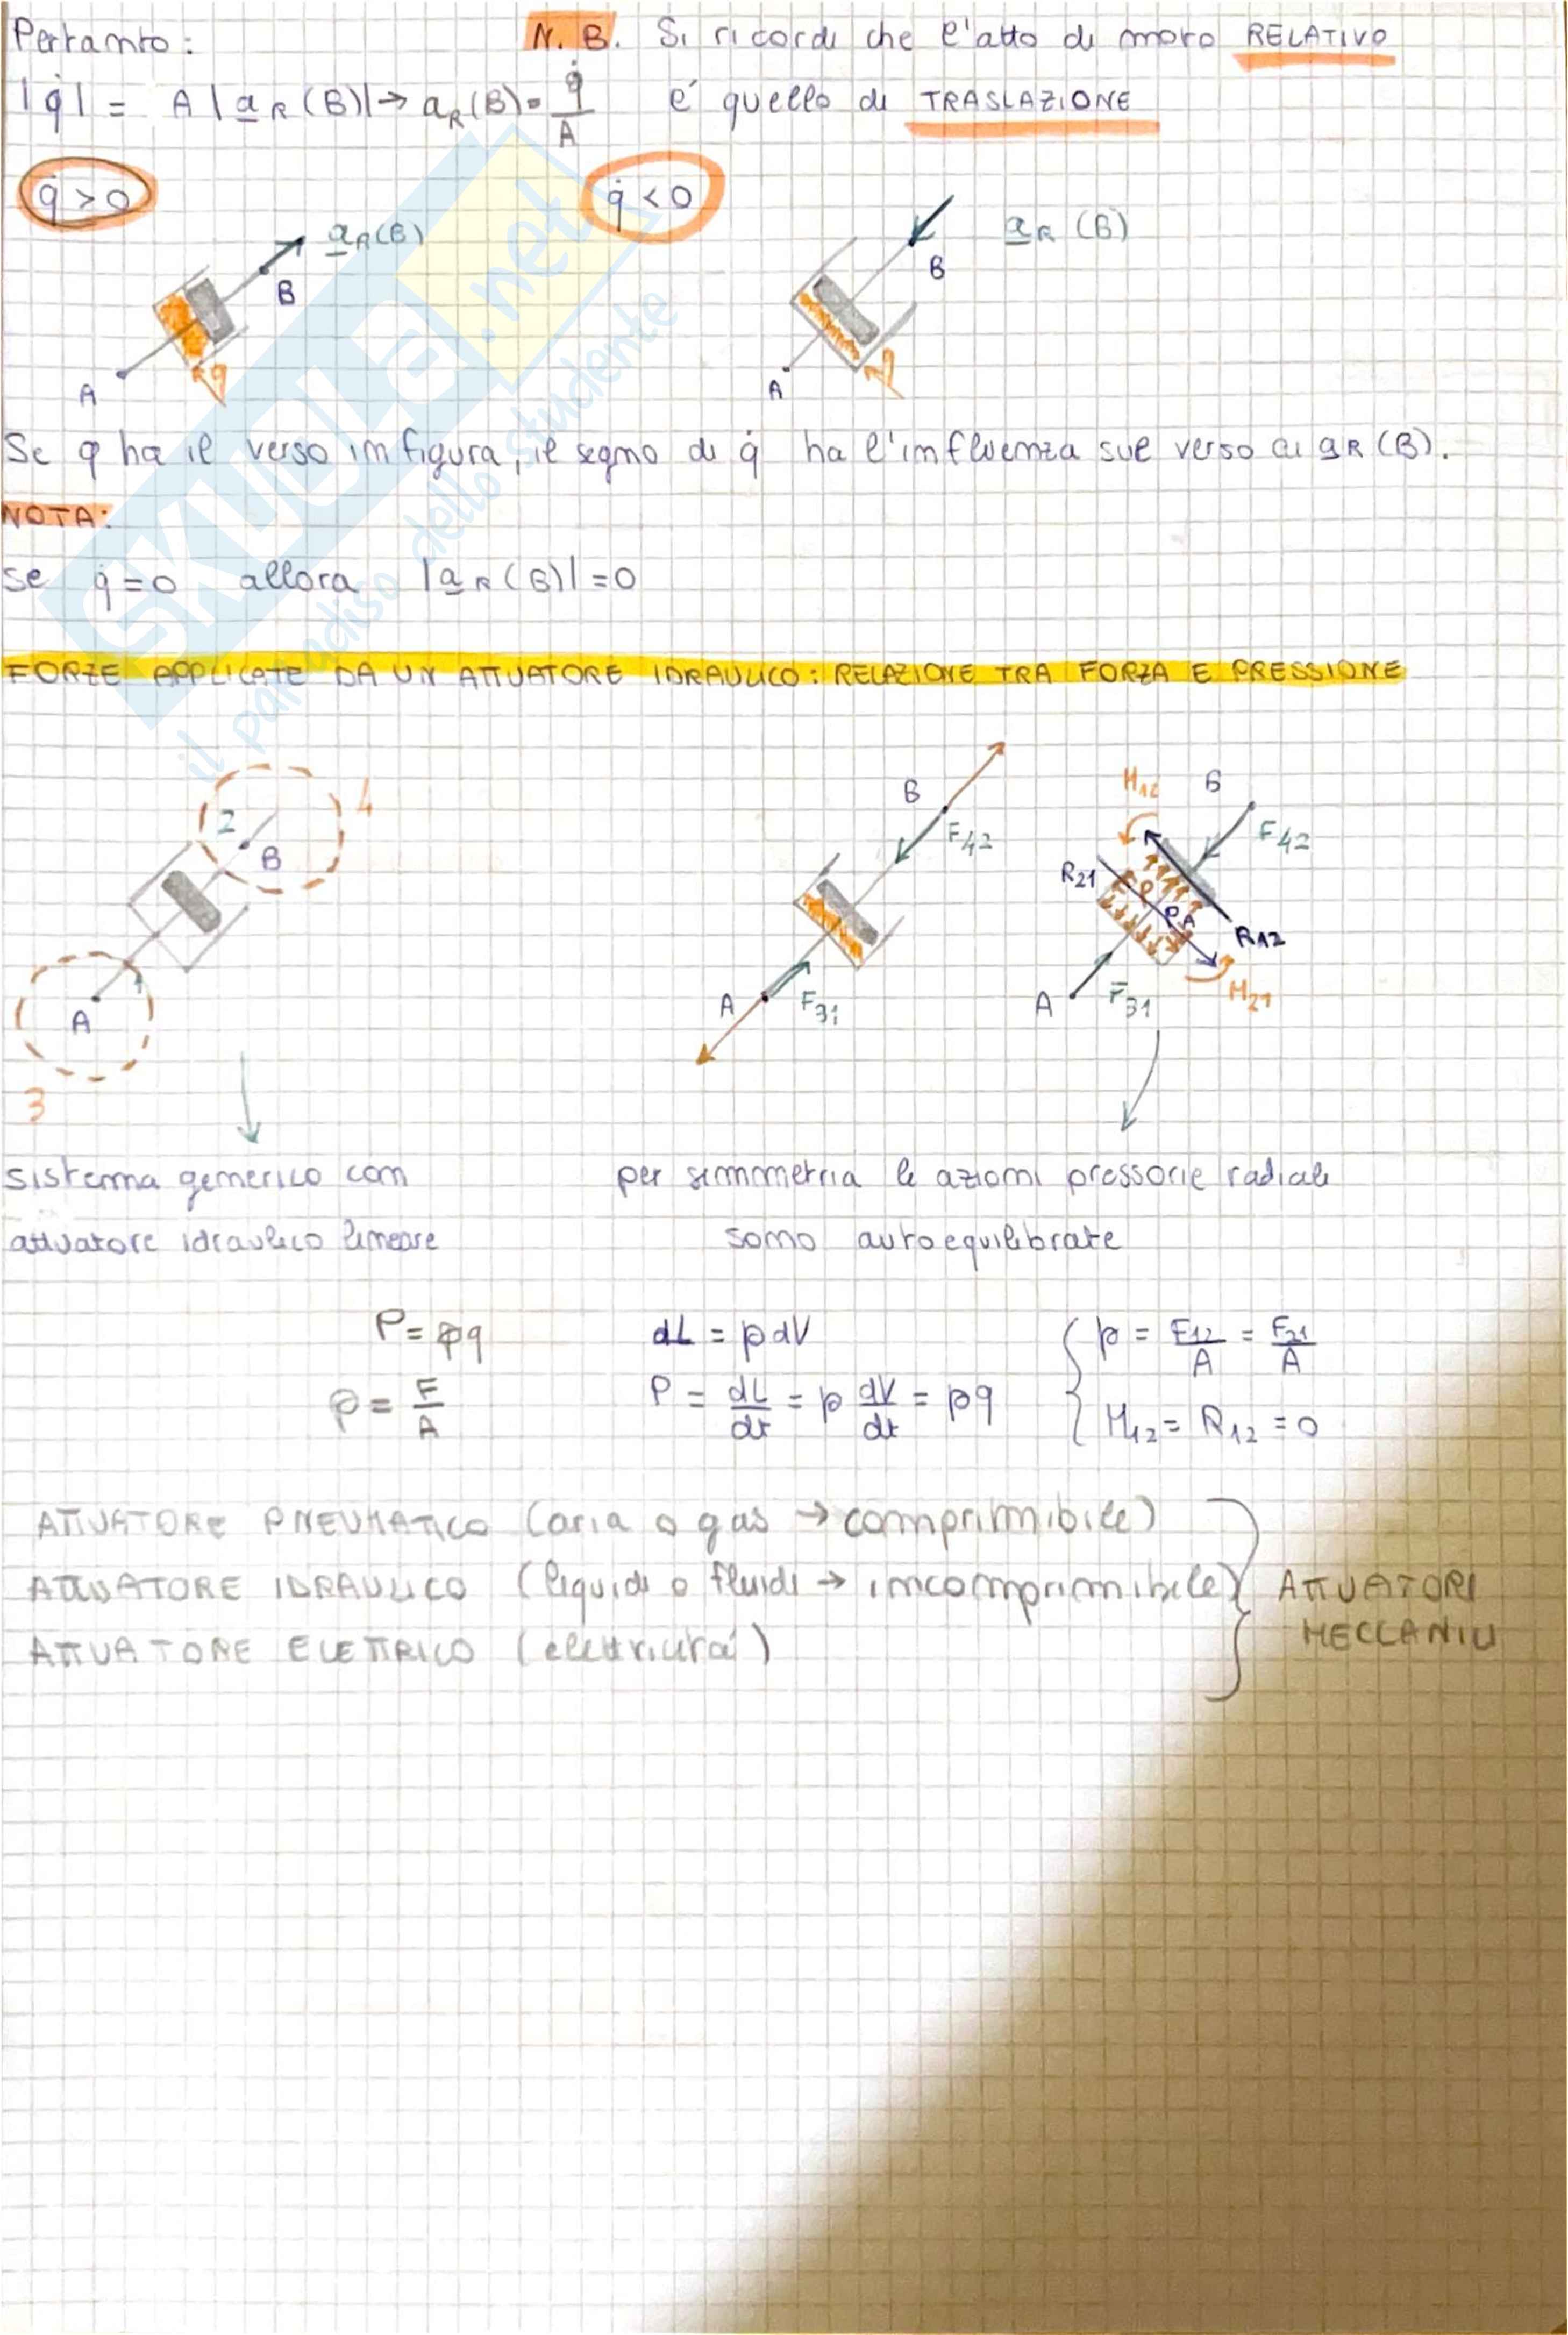 Pertanto:
N.B. Si ricordi che l'atto di moto RELATIVO
|q̇| = A |a_R(B)| → a_R(B) = q̇/A
è quello di TRASLAZIONE
q̇ > 0
q̇ < 0
a_R(B)
B
A
q
a_R (B)
B
A
q
Se q ha il verso in figura, il segno di q̇ ha l'influenza sul verso di a_R (B).
NOTA:
se q̇ = 0 allora |a_R (B)| = 0
FORZE APPLICATE DA UN ATTUATORE IDRAULICO: RELAZIONE TRA FORZA E PRESSIONE
4
2
B
1
A
3
B
F42
A
F31
M12
B
F42
R21
P
PA
R12
M21
A
F31
sistema generico con
attuatore idraulico lineare
per simmetria le azioni pressorie radiali
sono autoequilibrate
P = pq
p = F/A
dL = p dV
P = dL/dt = p dV/dt = pq
{ p = F12/A = F21/A
M12 = R12 = 0
ATTUATORE PNEUMATICO (aria o gas → comprimibile)
ATTUATORE IDRAULICO (liquidi o fluidi → incomprimibile)
ATTUATORE ELETTRICO (elettricità)
} ATTUATORI
MECCANICI
SKUOLA.net
il paradiso dello studente